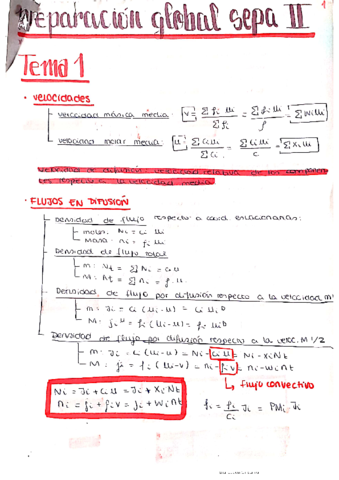 Preparación global sepa II
Tema 1
· VELOCIDADES
velocidad másica media: v = Σ ρi ui / Σ ρi = Σ ρi ui / ρ = Σ wi ui
velocidad molar media: u = Σ ci ui / Σ ci = Σ ci ui / c = Σ xi ui
velocidad de difusión: velocidad relativa de los componentes respecto a la velocidad media
· FLUJOS EN DIFUSIÓN
Densidad de flujo respecto a coord. estacionarias:
molar: Ni = ci ui
masa: ni = ρi ui
Densidad de flujo total
m: Nt = Σ Ni = c u
M: nt = Σ ni = ρ v
Densidad de flujo por difusión respecto a la velocidad m
Densidad de flujo por difusión respecto a la veloc. M
m: Ji = ci (ui - u) = Ni - ci u = Ni - xi Nt
M: ji = ρi (ui - v) = ni - ρi v = ni - wi nt
↳ flujo convectivo
Ni = Ji + ci u = Ji + xi Nt
ni = ji + ρi v = ji + wi nt
ji = ρi / ci Ji = PMi Ji